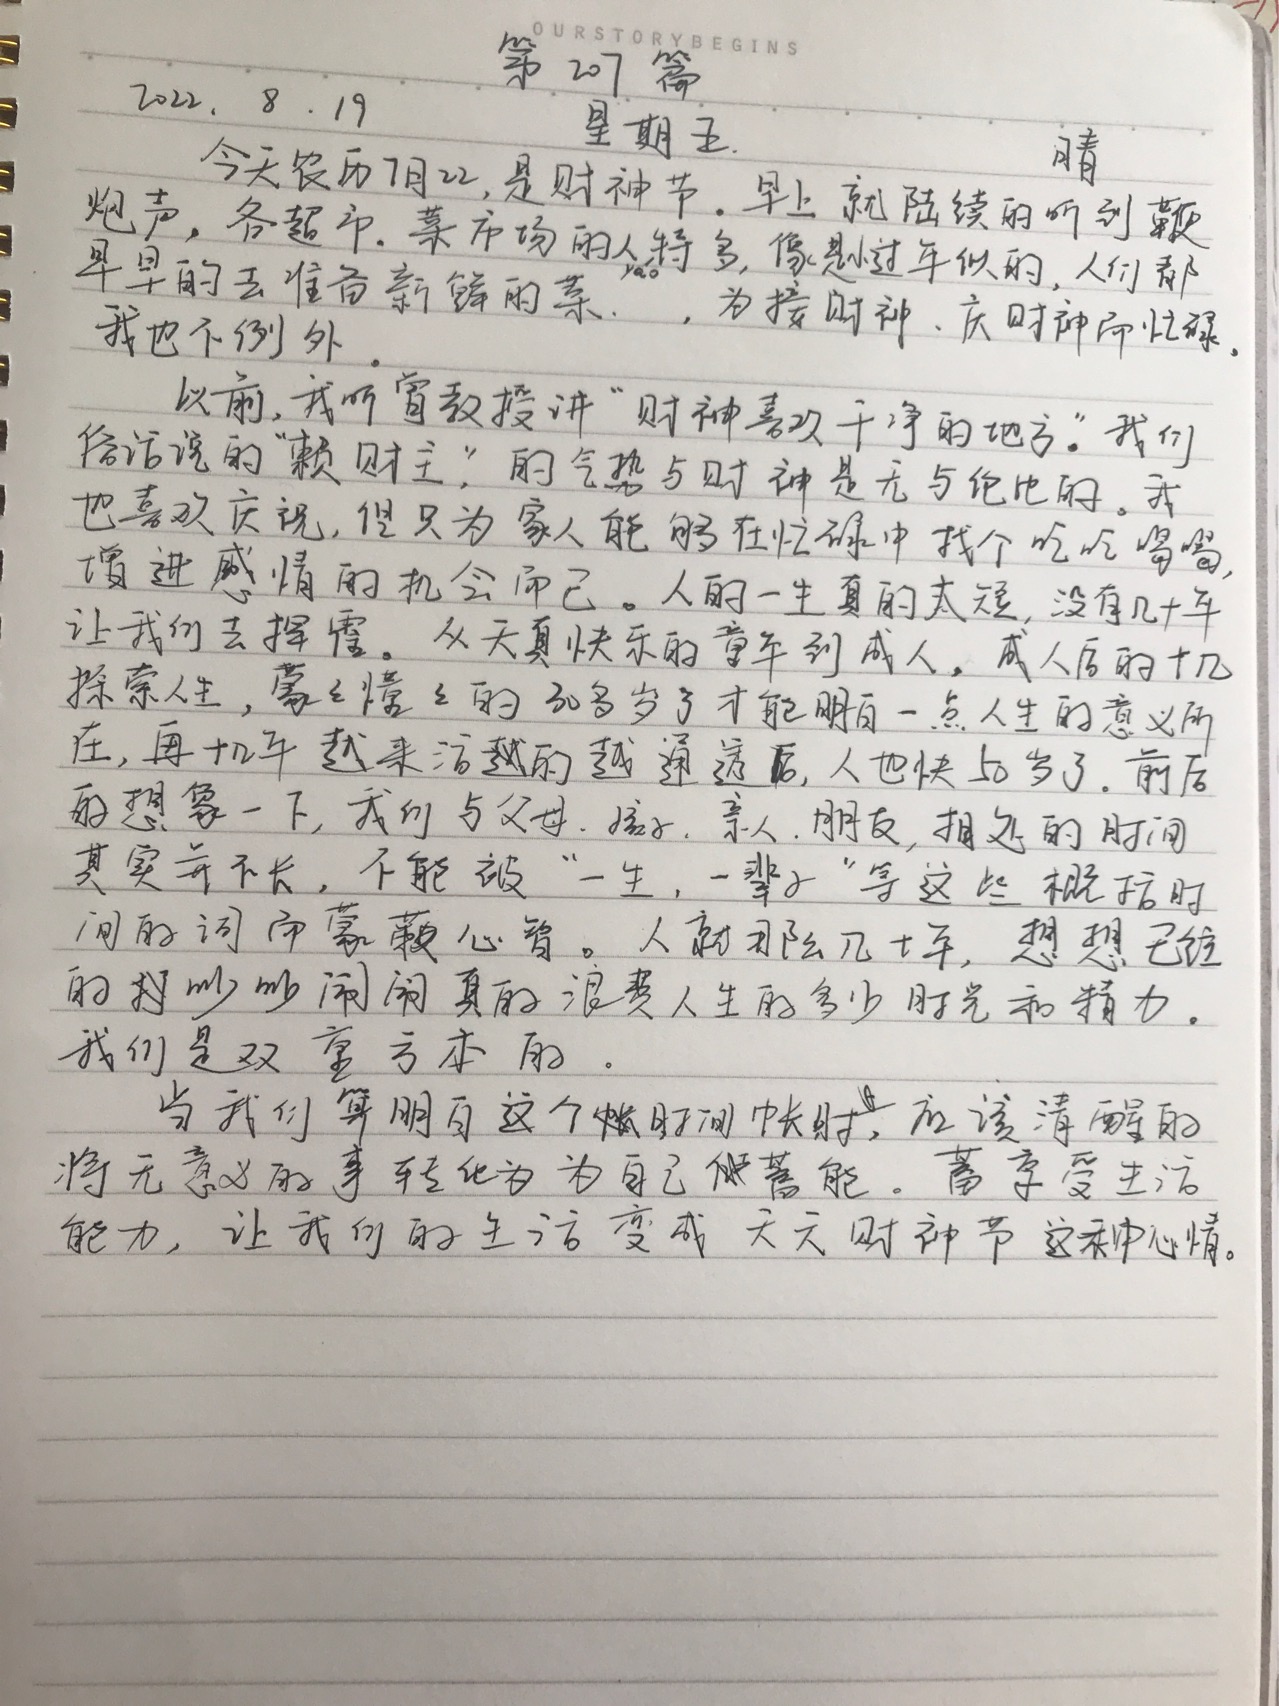 OURSTORYBEGINS
第207篇
2022.8.19
星期五.
晴
今天农历7月22,是财神节。早上就陆续的听到鞭
炮声。各超市.菜市场的人特多,像是过年似的,人们都
早早的去准备新鲜的菜. yao ,为接财神、庆财神而忙碌。
我也不例外。
以前,我听曾教授讲“财神喜欢干净的地方。”我们
俗话说的“赖财主”的气势与财神是无与伦比的。我
也喜欢庆祝,但只为家人能够在忙碌中找个吃吃喝喝,
增进感情的机会而已。人的一生真的太短,没有几十年
让我们去挥霍。从天真快乐的童年到成人。成人后的十几
探索人生,蒙々懂々的30多岁了才能明白一点人生的意义所
在,再十几年越来活越的越通透后,人也快50岁了.前后
的想象一下,我们与父母.孩子.亲人.朋友,相处的时间
其实并不长,不能被“一生,一辈子”等这些概括时
间的词而蒙蔽心智。人就那么几十年,想想已经
的吵吵闹闹真的浪费人生的多少时光和精力.
我们是双重亏本的.
当我们算明白这个时间帐时,应该清醒的
将无意义的事转化为为自己储蓄能.蓄享受生活
能力,让我们的生活变成天天财神节这种心情。